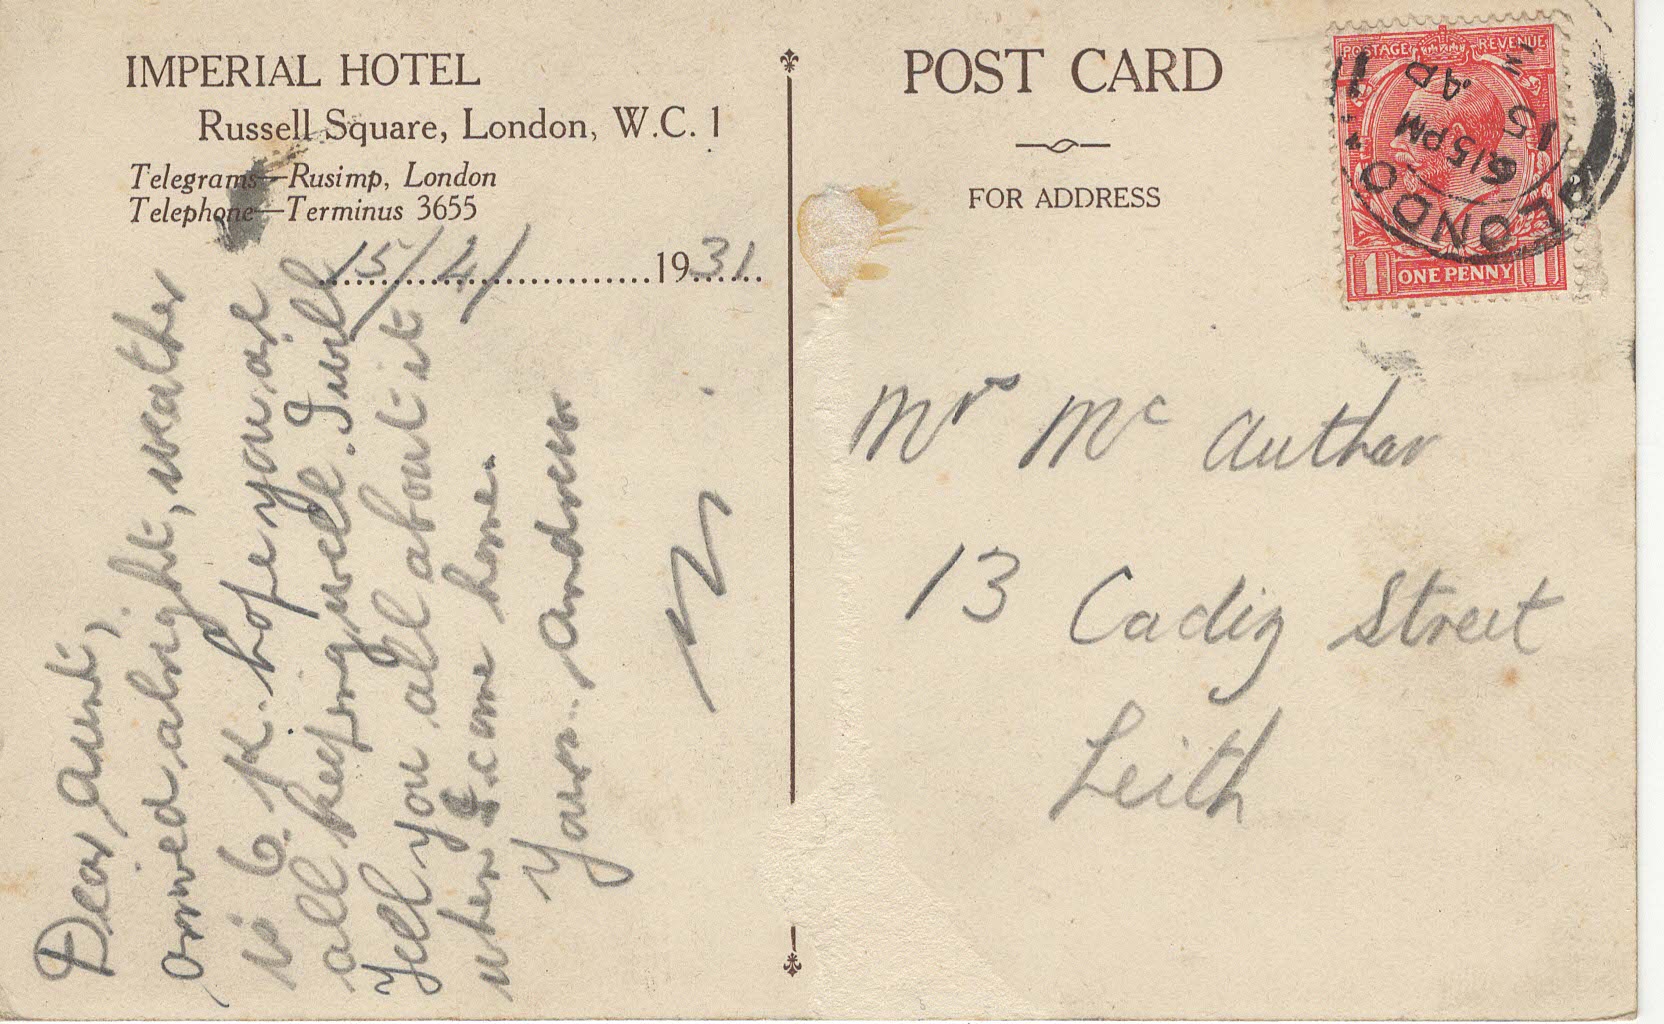 IMPERIAL HOTEL
Russell Square, London, W.C. 1
Telegrams—Rusimp, London
Telephone—Terminus 3655
15/4/ 1931
Dear Aunt,
arrived alright, weather
is 6 k. hope you are
all keeping well. I will
tell you all about it
when I come home.
Yours. Andrew
POST CARD
FOR ADDRESS
POSTAGE REVENUE
1 ONE PENNY 1
LONDO
615PM
15
AP
31
Mrs Mc Authar
13 Cadiz Street
Leith